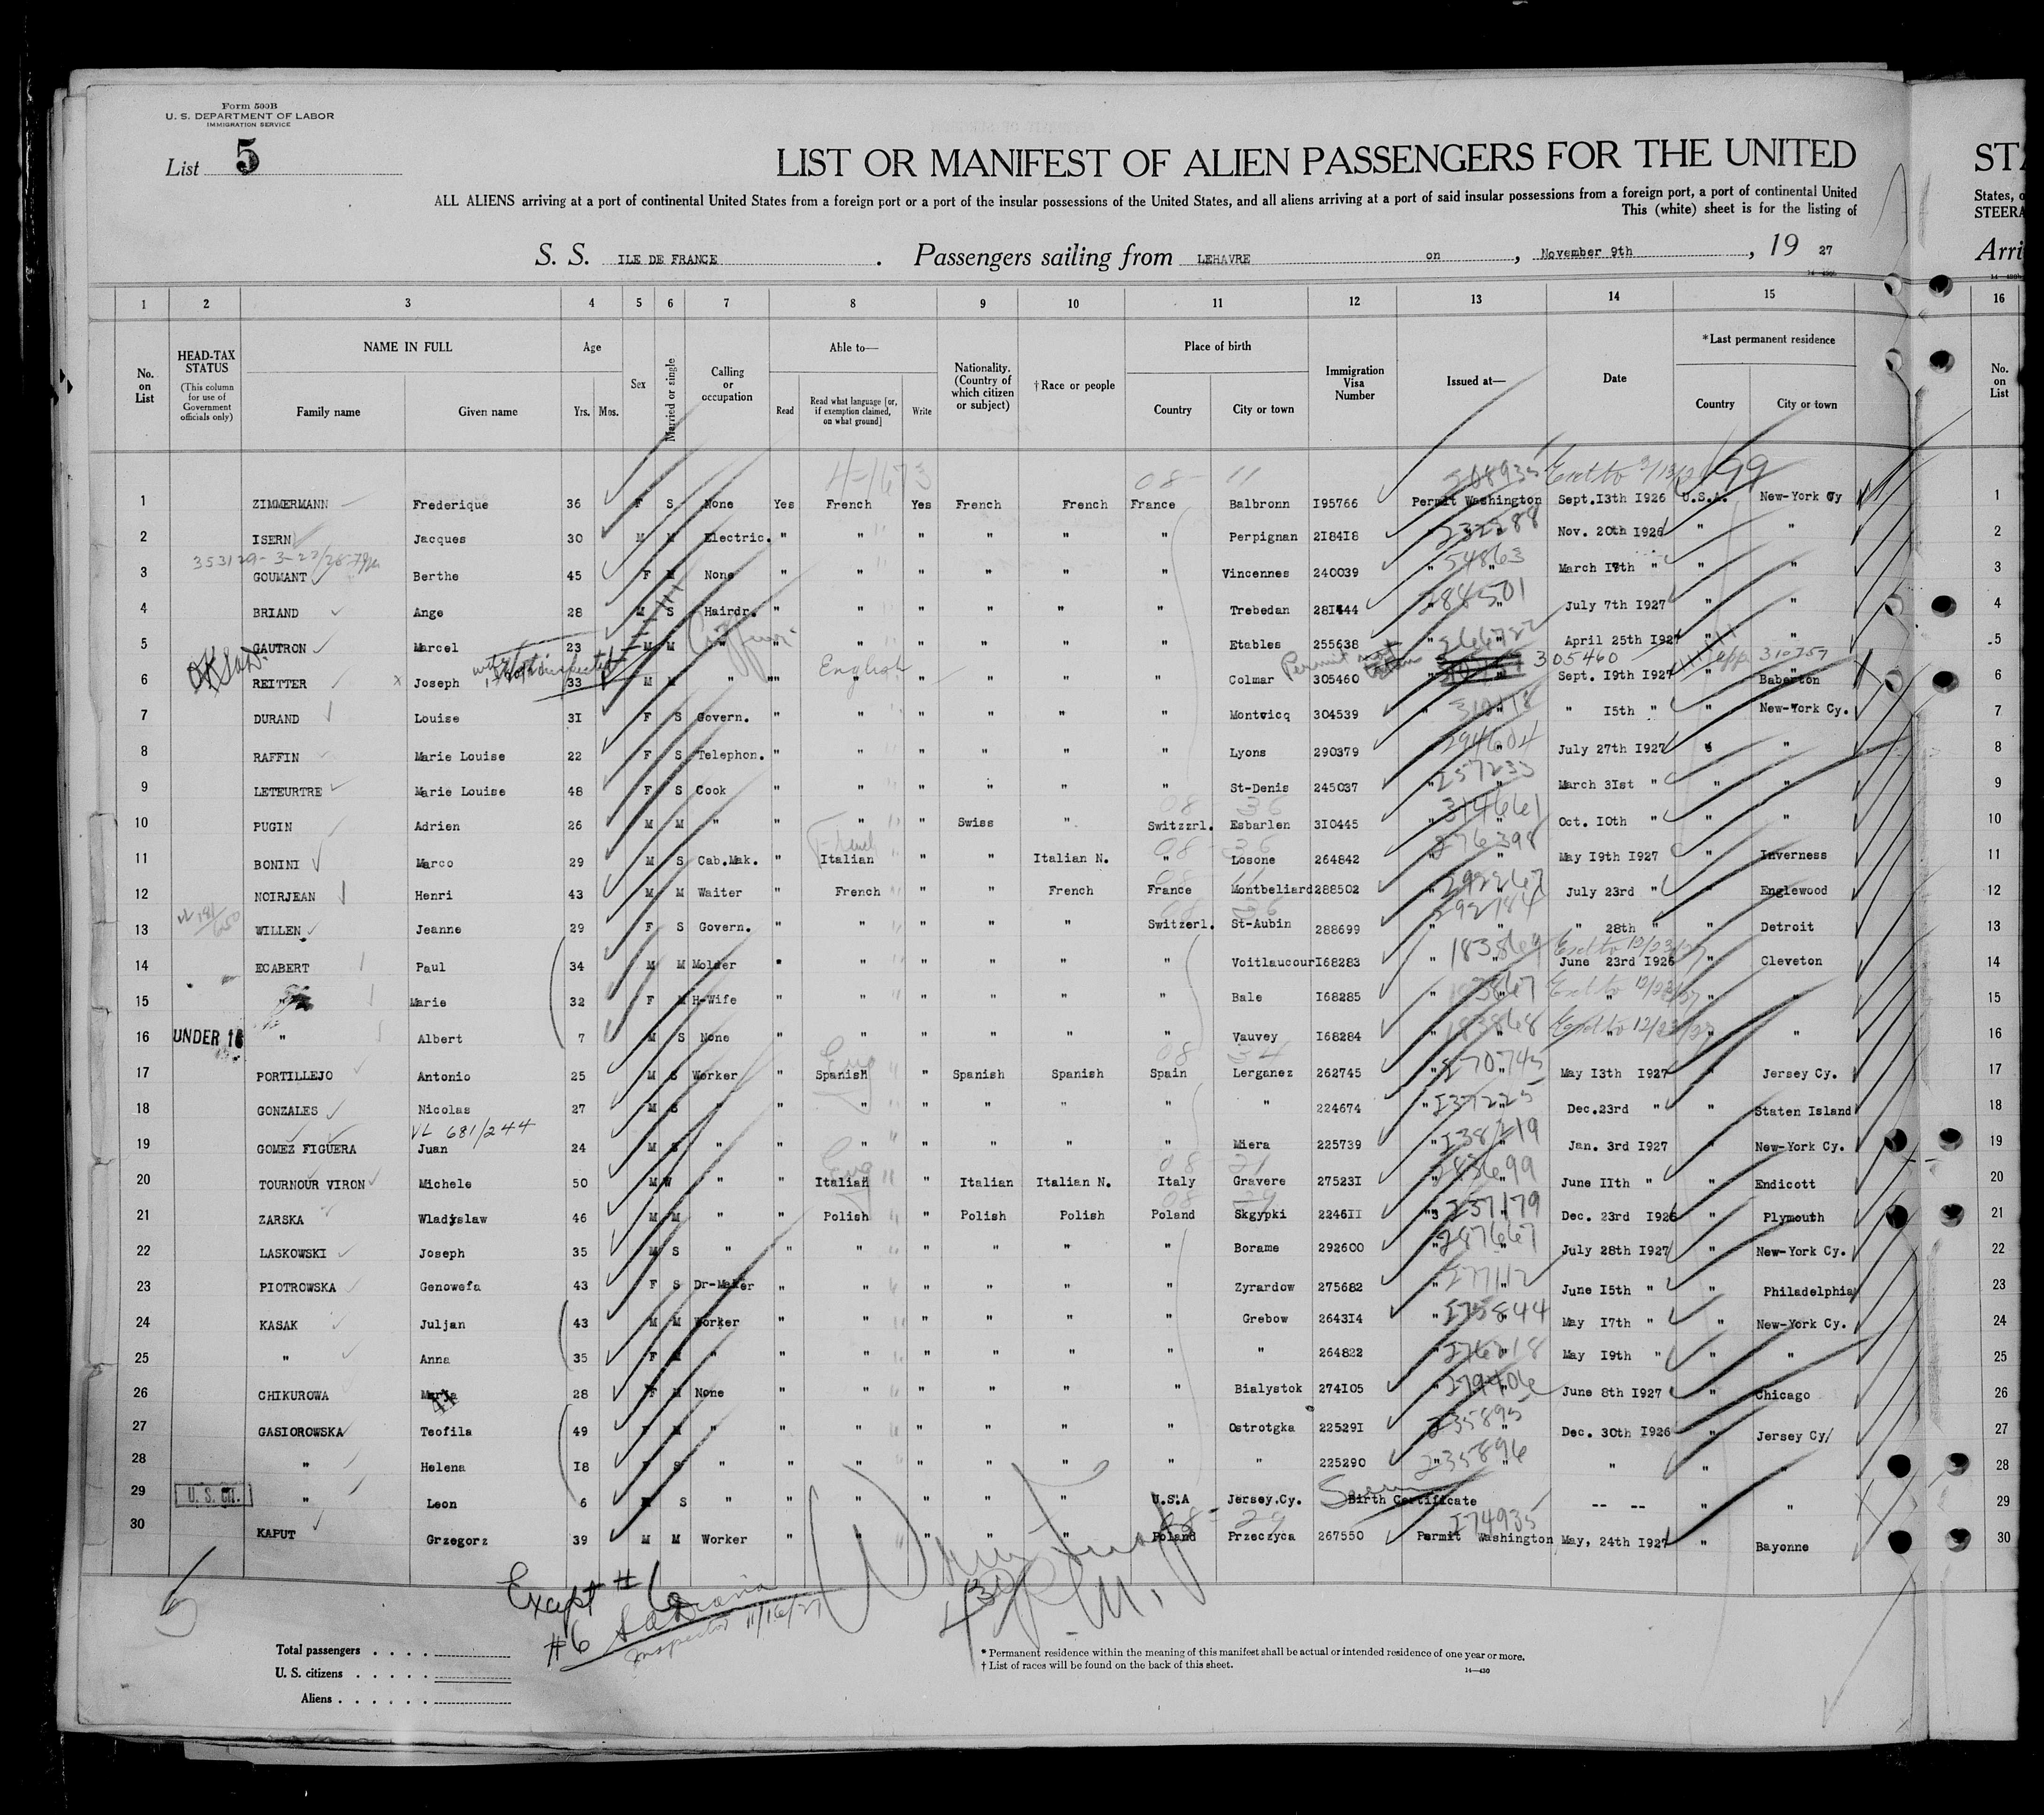 Form 500B
U. S. DEPARTMENT OF LABOR
IMMIGRATION SERVICE
List 5
LIST OR MANIFEST OF ALIEN PASSENGERS FOR THE UNITED
STA
ALL ALIENS arriving at a port of continental United States from a foreign port or a port of the insular possessions of the United States, and all aliens arriving at a port of said insular possessions from a foreign port, a port of continental United
States, o
This (white) sheet is for the listing of
STEERA
S. S. ILE DE FRANCE . Passengers sailing from LEHAVRE on , November 9th , 19 27
Arri
1 2 3 4 5 6 7 8 9 10 11 12 13 14 15 16
No. on List
HEAD-TAX STATUS (This column for use of Government officials only)
NAME IN FULL
Family name Given name
Age
Yrs. Mos.
Sex
Married or single
Calling or occupation
Able to—
Read Read what language [or, if exemption claimed, on what ground] Write
Nationality. (Country of which citizen or subject)
†Race or people
Place of birth
Country City or town
Immigration Visa Number
Issued at—
Date
*Last permanent residence
Country City or town
No. on List
08 - 11 208935 99
1 ZIMMERMANN Frederique 36 F S None Yes French Yes French French France Balbronn I95766 Permit Washington Sept.I3th I926 U.S.A. New-York Cy 1
2 ISERN Jacques 30 M M Electric. " " " " " " Perpignan 2I84I8 232288 Nov. 20th I926 " " 2
3 GOUMANT Berthe 45 F M None " " " " " " Vincennes 240039 " 54863 " March I8th " " " 3
4 BRIAND Ange 28 M S Hairdr. " " " " " " Trebedan 28I444 284501 July 7th I927 " " 4
5 GAUTRON Marcel 23 M M " " " " " " " Etables 255638 " " April 25th I927 " " 5
OK
English 305460 310757
6 REITTER Joseph 33 M M " " " " " " " Colmar 305460 " " Sept. I9th I927 " Baberton 6
7 DURAND Louise 3I F S Govern. " " " " " " Montvicq 304539 " " " I5th " " New-York Cy. 7
8 RAFFIN Marie Louise 22 F S Telephon. " " " " " " Lyons 290379 294604 July 27th I927 " " 8
9 LETEURTRE Marie Louise 48 F S Cook " " " " " " St-Denis 245037 " 257233 " March 3Ist " " " 9
08 36 314661
10 PUGIN Adrien 26 M M " " " " Swiss " Switzzrl. Esbarlen 3I0445 " " Oct. I0th " " " 10
French 08 - 36 276398
11 BONINI Marco 29 M S Cab.Mak. " Italian " " Italian N. " Losone 264842 " " May I9th I927 " Inverness 11
08 11 292267
12 NOIRJEAN Henri 43 M M Waiter " French " " French France Montbeliard 288502 " " July 23rd " " Englewood 12
08 36 292184
13 WILLEN Jeanne 29 F S Govern. " " " " " Switzerl. St-Aubin 288699 " " " 28th " " Detroit 13
14 ECABERT Paul 34 M M Molder " " " " " " Voitlaucour I68283 " " June 23rd I926 " Cleveton 14
15 " Marie 32 F M H-Wife " " " " " " Bale I68285 " " " " " 15
16 UNDER 16 " Albert 7 M S None " " " " " " Vauvey I68284 " 183868 " " " " 16
Eng 08 34 270745
17 PORTILLEJO Antonio 25 M S Worker " Spanish " Spanish Spanish Spain Lerganez 262745 " " May I3th I927 " Jersey Cy. 17
18 GONZALES Nicolas 27 M S " " " " " " " " 224674 " " Dec.23rd " " Staten Island 18
VL 681/244
19 GOMEZ FIGUERA Juan 24 M S " " " " " " " Miera 225739 " " Jan. 3rd I927 " New-York Cy. 19
Eng 08 - 21 283699
20 TOURNOUR VIRON Michele 50 M W " " Italian " Italian Italian N. Italy Gravere 27523I " " June IIth " " Endicott 20
08 29 237179
21 ZARSKA Wladyslaw 46 M M " " Polish " Polish Polish Poland Skgypki 2246II " " Dec. 23rd I926 " Plymouth 21
22 LASKOWSKI Joseph 35 M S " " " " " " " Borame 292600 " 297667 " July 28th I927 " New-York Cy. 22
23 PIOTROWSKA Genowefa 43 F S Dr-Maker " " " " " " Zyrardow 275682 " 277112 " June I5th " " Philadelphia 23
24 KASAK Juljan 43 M M Worker " " " " " " Grebow 2643I4 " 275844 " May I7th " " New-York Cy. 24
25 " Anna 35 F M " " " " " " " " 264822 " 276218 " May I9th " " " 25
26 CHIKUROWA Maria 28 F M None " " " " " " Bialystok 274I05 " 279406 " June 8th I927 " Chicago 26
27 GASIOROWSKA Teofila 49 F M " " " " " " " Ostrotgka 22529I 235895 " Dec. 30th I926 " Jersey Cy/ 27
28 " Helena I8 F S " " " " " " " " 225290 " 235896 " " " " 28
29 U. S. Cit. " Leon 6 M S " " " " " " U.S.A Jersey.Cy. Seen Birth Certificate -- -- " " 29
08 - 29 274935
30 KAPUT Grzegorz 39 M M Worker " " " " " Poland Przeczyca 267550 Permit Washington May, 24th I927 " Bayonne 30
Except #6
#6
Inspector 11/16/27
Total passengers . . . .
U. S. citizens . . . . .
Aliens . . . . . .
* Permanent residence within the meaning of this manifest shall be actual or intended residence of one year or more.
† List of races will be found on the back of this sheet.
14—430